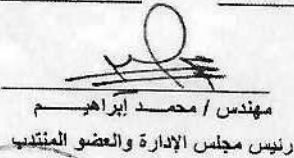 مهندس / محمد إبراهيم
رئيس مجلس الإدارة والعضو المنتدب